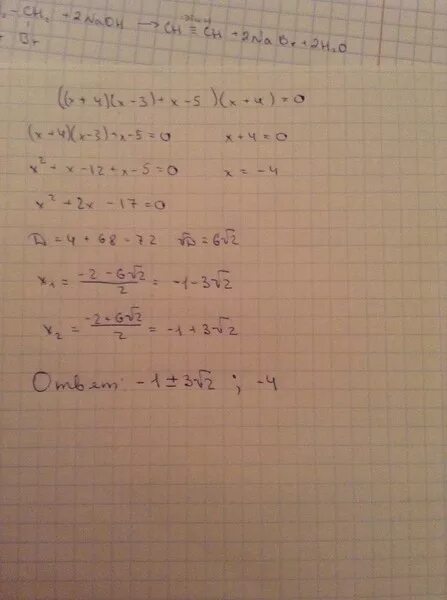 -CH₂ + 2NaOH → CH ≡ CH + 2NaBr + 2H₂O
Br
((x+4)(x-3)+x-5)(x+4)=0
(x+4)(x-3)+x-5=0 x+4=0
x²+x-12+x-5=0 x=-4
x²+2x-17=0
D=4+68=72 √D=6√2
x₁=(-2-6√2)/2=-1-3√2
x₂=(-2+6√2)/2=-1+3√2
Ответ: -1±3√2; -4